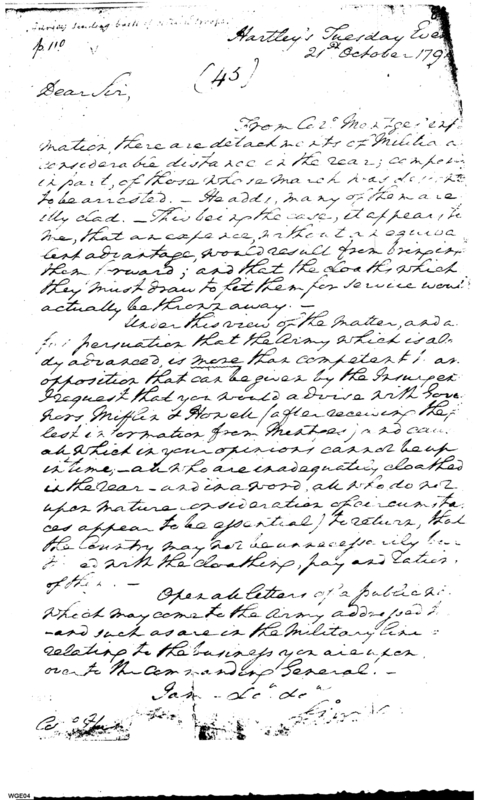 sending back of
p. 110
Hartley's Tuesday Even
21st October 179
(45)
Dear Sir,
From Colo. Mentges' infor
mation, there are detachments of Militia a
considerable distance in the rear; composed
in part, of those whose march was desired
to be arrested. – He adds, many of them are
illy clad. – This being the case, it appears to
me, that an expence, without an equiva
lent advantage, would result from bringing
them forward; and that the cloaths which
they must draw to fit them for service would
actually be thrown away. –
Under this view of the matter, and a
full persuation that the Army which is al
dy advanced, is more than competent to any
opposition that can be given by the Insurgen
I request that you would advise with Gover
nors Mifflin & Howell (after receiving the
lest information from Mentges) and cau
all which in your opinions cannot be up
in time, – all who are inadequately cloathed
in the rear – and in a word, all who do not
upon mature consideration of circumstan
ces appear to be essential, to return, that
the Country may not be unnecessarily bur
ed with the cloathing, pay and rations
of them. –
Open all letters of a public n
which may come to the Army addressed to
– and such as are in the Military line =
relating to the business you are upon
over to the Commanding General. –
I am – &ca. &ca.
WGE04